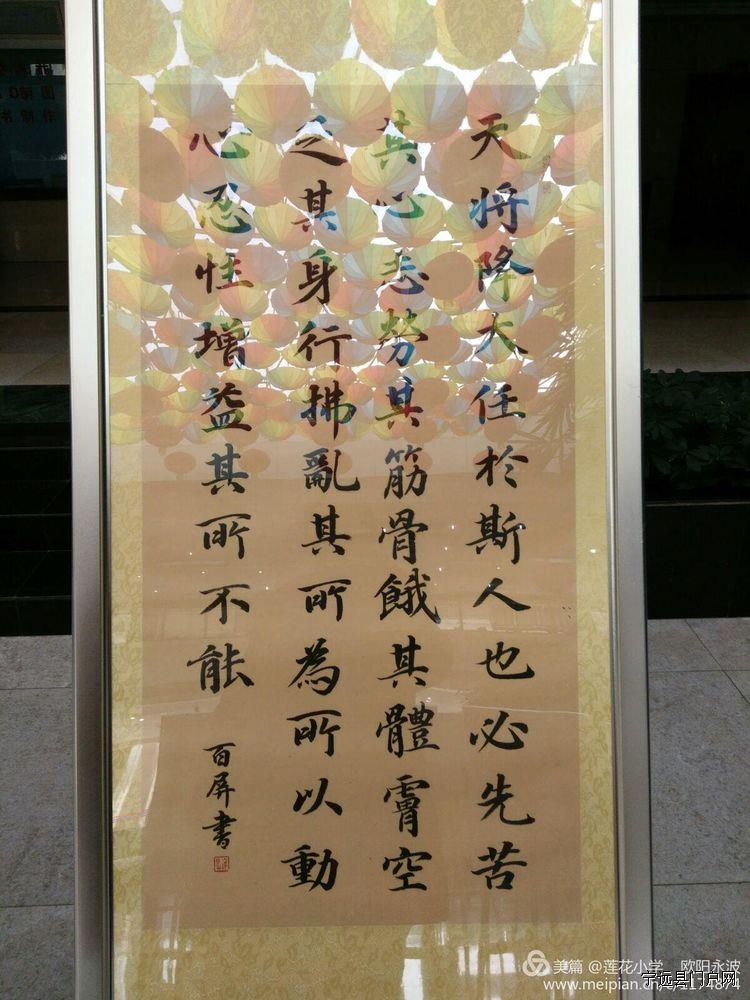 天将降大任於斯人也必先苦
其心志勞其筋骨餓其體膚空
乏其身行拂亂其所為所以動
心忍性增益其所不能
百屏書
美篇 @莲花小学 欧阳永波
www.meipian.cn
宁远县门户网